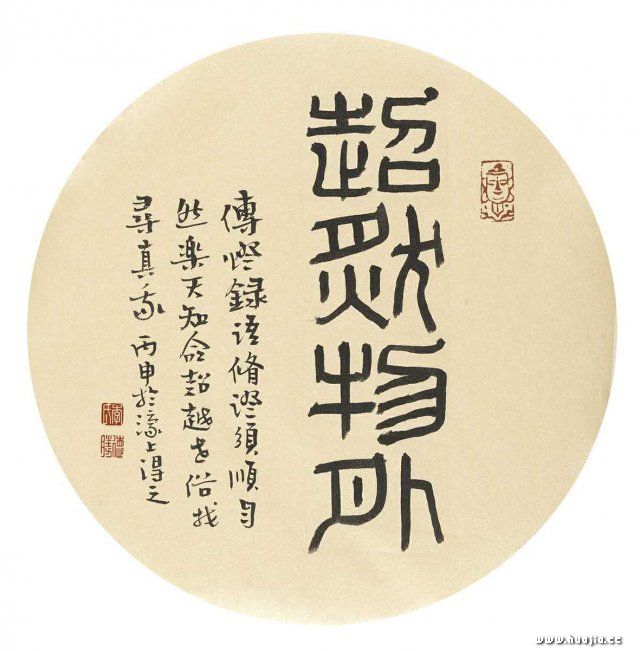 超然物外
傳燈録语脩證须順自
然樂天知命超越世俗找
尋真我丙申於濠上得之
www.huajia.cc